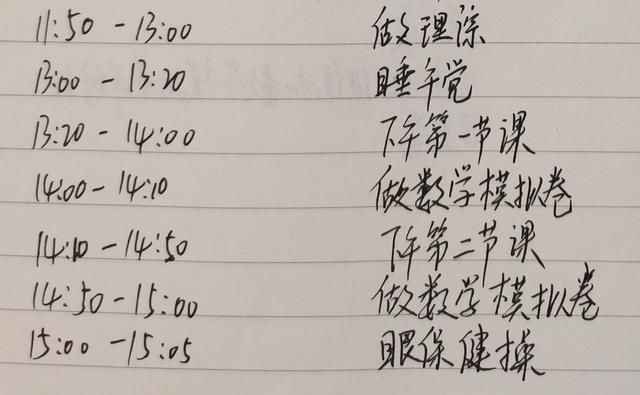 11:50 - 13:00 做理综
13:00 - 13:20 睡午觉
13:20 - 14:00 下午第一节课
14:00 - 14:10 做数学模拟卷
14:10 - 14:50 下午第二节课
14:50 - 15:00 做数学模拟卷
15:00 - 15:05 眼保健操